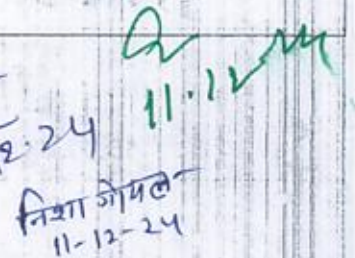 11.12
2.24
निशा गोयल
11-12-24